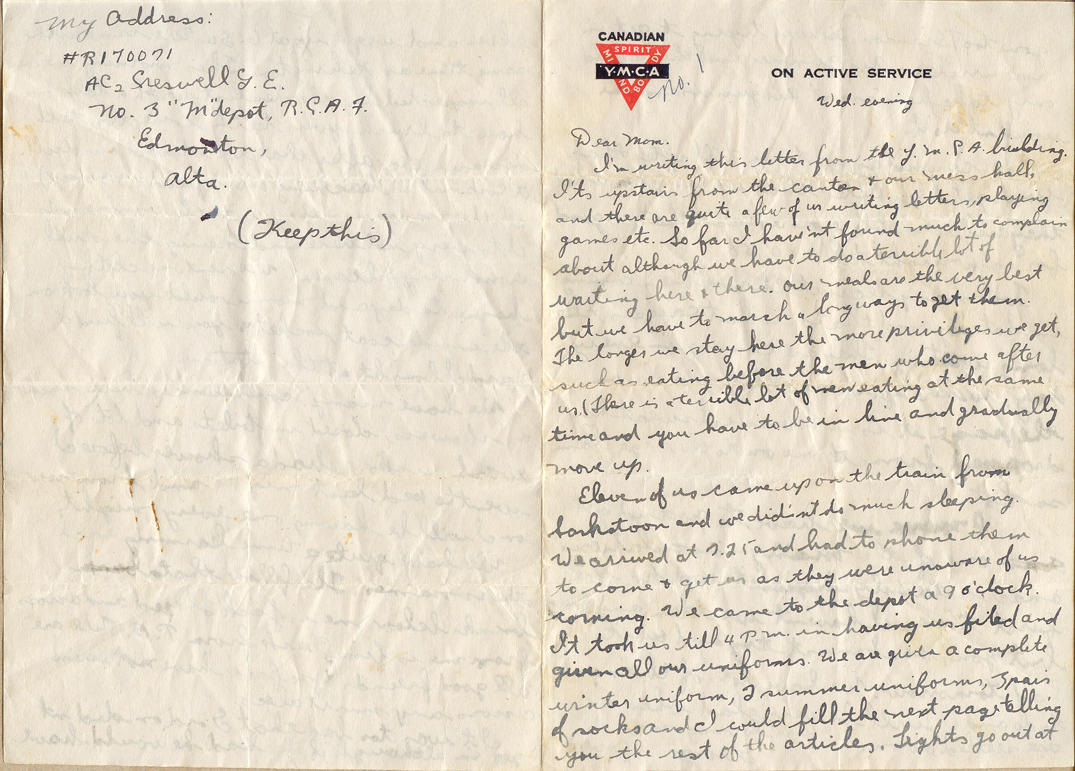 My Address:
#R170071
AC2 Greswell G. E.
No. 3 "M" depot, R.C.A.F.
Edmonton,
Alta.
(Keep this)
CANADIAN
SPIRIT
MIND
BODY
Y·M·C·A
No. 1
ON ACTIVE SERVICE
Wed. evening
Dear Mom.
I'm writing this letter from the Y.M.C.A. building.
It's upstairs from the canteen & our mess hall,
and there are quite a few of us writing letters, playing
games etc. So far I haven't found much to complain
about although we have to do a terrible lot of
waiting here & there. Our meals are the very best
but we have to march a long ways to get them.
The longer we stay here the more privileges we get,
such as eating before the men who come after
us. (There is a terrible lot of men eating at the same
time and you have to be in line and gradually
move up.
Eleven of us came up on the train from
Saskatoon and we didn't do much sleeping.
We arrived at 7.25 and had to phone them
to come & get us as they were unaware of us
coming. We came to the depot a 9 o'clock.
It took us till 4 P.m. in having us filed and
given all our uniforms. We are given a complete
winter uniform, 2 summer uniforms, 3 pair
of socks and I could fill the next page telling
you the rest of the articles. Lights go out at